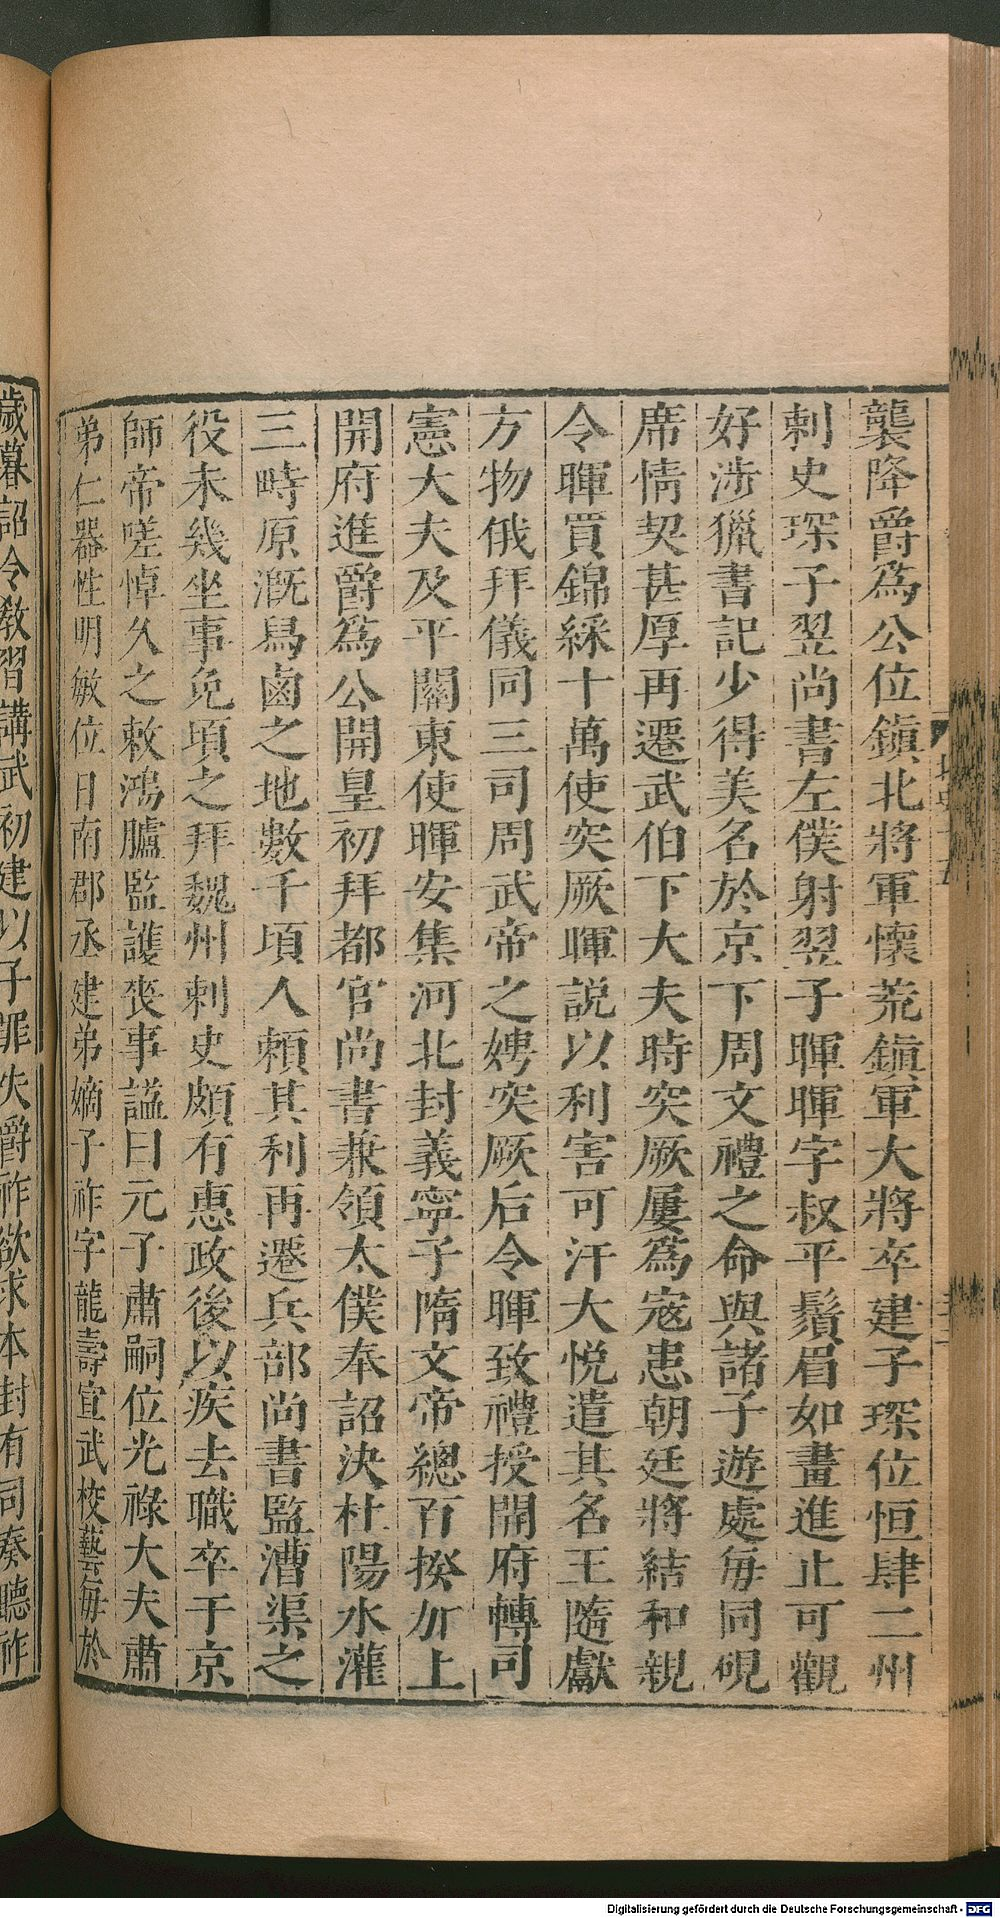 襲降爵爲公位鎭北將軍懷荒鎭軍大將卒建子琛位恒肆二州
刺史琛子翌尚書左僕射翌子暉暉字叔平鬚眉如畫進止可觀
好涉獵書記少得美名於京下周文禮之命與諸子遊處每同硯
席情契甚厚再遷武伯下大夫時突厥屢爲寇患朝廷將結和親
令暉買錦綵十萬使突厥暉說以利害可汗大悅遣其名王隨獻
方物俄拜儀同三司周武帝之娉突厥后令暉致禮授開府轉司
憲大夫及平關東使暉安集河北封義寧子隋文帝總百揆加上
開府進爵爲公開皇初拜都官尚書兼領太僕奉詔決杜陽水灌
三畤原溉舄鹵之地數千頃人賴其利再遷兵部尚書監漕渠之
役未幾坐事免頃之拜魏州刺史頗有惠政後以疾去職卒于京
師帝嗟悼久之敕鴻臚監護喪事謚曰元子肅嗣位光祿大夫肅
弟仁器性明敏位日南郡丞建弟嫡子祚字龍壽宣武校藝每於
歲暮詔令敎習講武初建以子罪失爵祚欲求本封有同奏聽祚
Digitalisierung gefördert durch die Deutsche Forschungsgemeinschaft - DFG